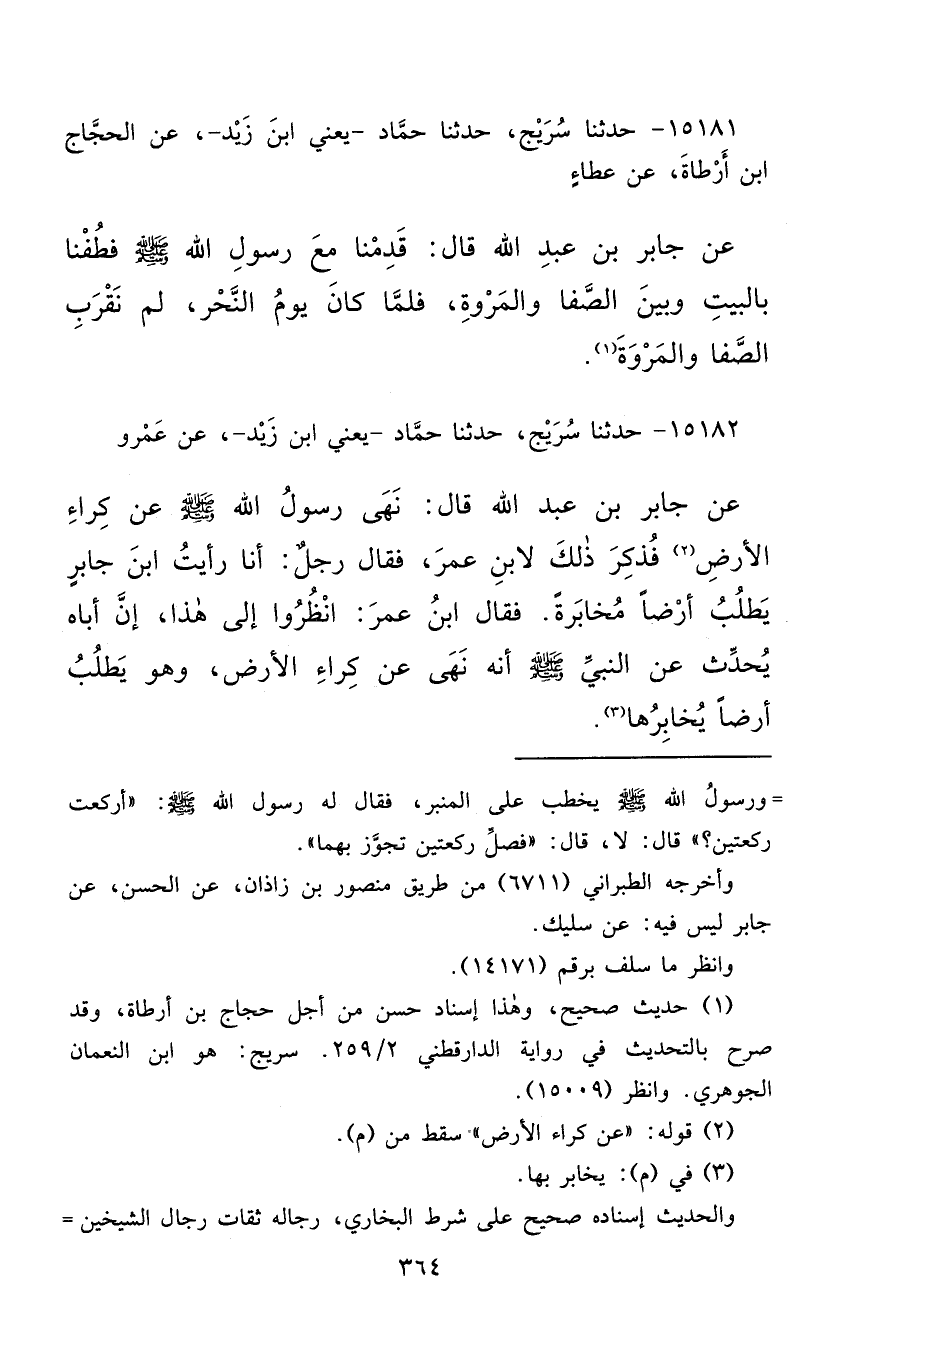 ١٥١٨١- حدثنا سُرَيْج، حدثنا حمَّاد -يعني ابنَ زَيْد-، عن الحجَّاج
ابن أَرْطاةَ، عن عطاءٍ
عن جابر بن عبدِ الله قال: قَدِمْنا معَ رسولِ الله ﷺ فطُفْنا
بالبيتِ وبينَ الصَّفا والمَرْوةِ، فلمَّا كانَ يومُ النَّحْر، لم نَقْرَبِ
الصَّفا والمَرْوَةَ(١).
١٥١٨٢- حدثنا سُرَيْج، حدثنا حمَّاد -يعني ابن زَيْد-، عن عَمْرو
عن جابر بن عبد الله قال: نَهَى رسولُ الله ﷺ عن كِراءِ
الأرضِ(٢) فُذكِرَ ذٰلكَ لابنِ عمرَ، فقال رجلٌ: أنا رأيتُ ابنَ جابرٍ
يَطلُبُ أرْضاً مُخابَرةً. فقال ابنُ عمرَ: انْظُرُوا إلى هٰذا، إنَّ أباه
يُحدِّث عن النبيِّ ﷺ أنه نَهَى عن كِراءِ الأرض، وهو يَطلُبُ
أرضاً يُخابِرُها(٣).
=ورسولُ الله ﷺ يخطب على المنبر، فقال له رسول الله ﷺ: «أركعت
ركعتين؟» قال: لا، قال: «فصلِّ ركعتين تجوَّز بهما».
وأخرجه الطبراني (٦٧١١) من طريق منصور بن زاذان، عن الحسن، عن
جابر ليس فيه: عن سليك.
وانظر ما سلف برقم (١٤١٧١).
(١) حديث صحيح، وهٰذا إسناد حسن من أجل حجاج بن أرطاة، وقد
صرح بالتحديث في رواية الدارقطني ٢٥٩/٢. سريج: هو ابن النعمان
الجوهري. وانظر (١٥٠٠٩).
(٢) قوله: «عن كراء الأرض» سقط من (م).
(٣) في (م): يخابر بها.
والحديث إسناده صحيح على شرط البخاري، رجاله ثقات رجال الشيخين =
٣٦٤